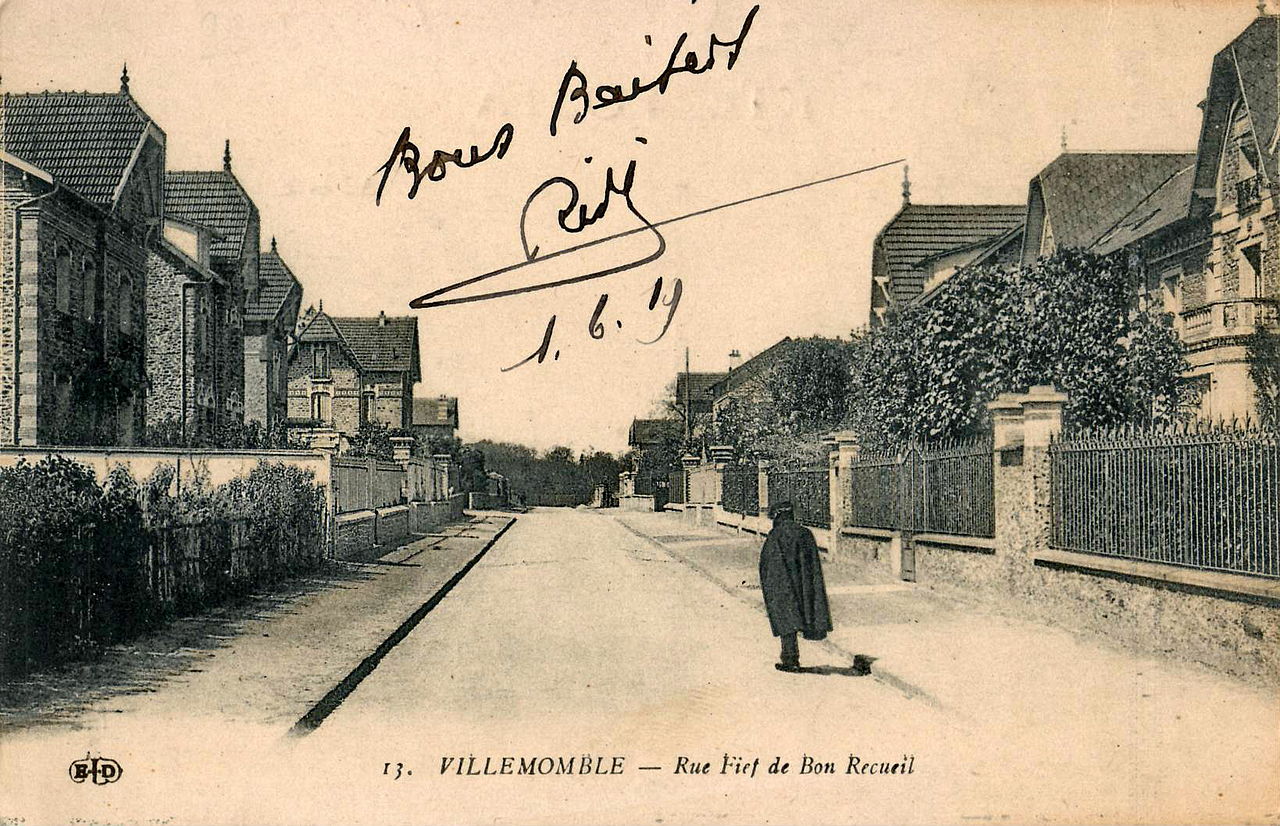 Bons Baisers
1.6.19
E L D
13. VILLEMOMBLE — Rue Fief de Bon Recueil